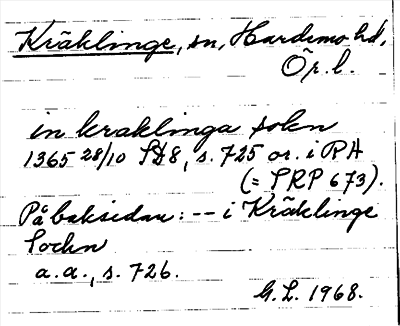 Kräklinge, sn, Hardemo hd,
Ör. l.
in kraklinga sokn
1365 28/10 SD8, s. 725 or. i RA
(= SRP 673).
På baksidan: -- i Kräklinge
Sockn
a.a., s. 726.
G.L. 1968.